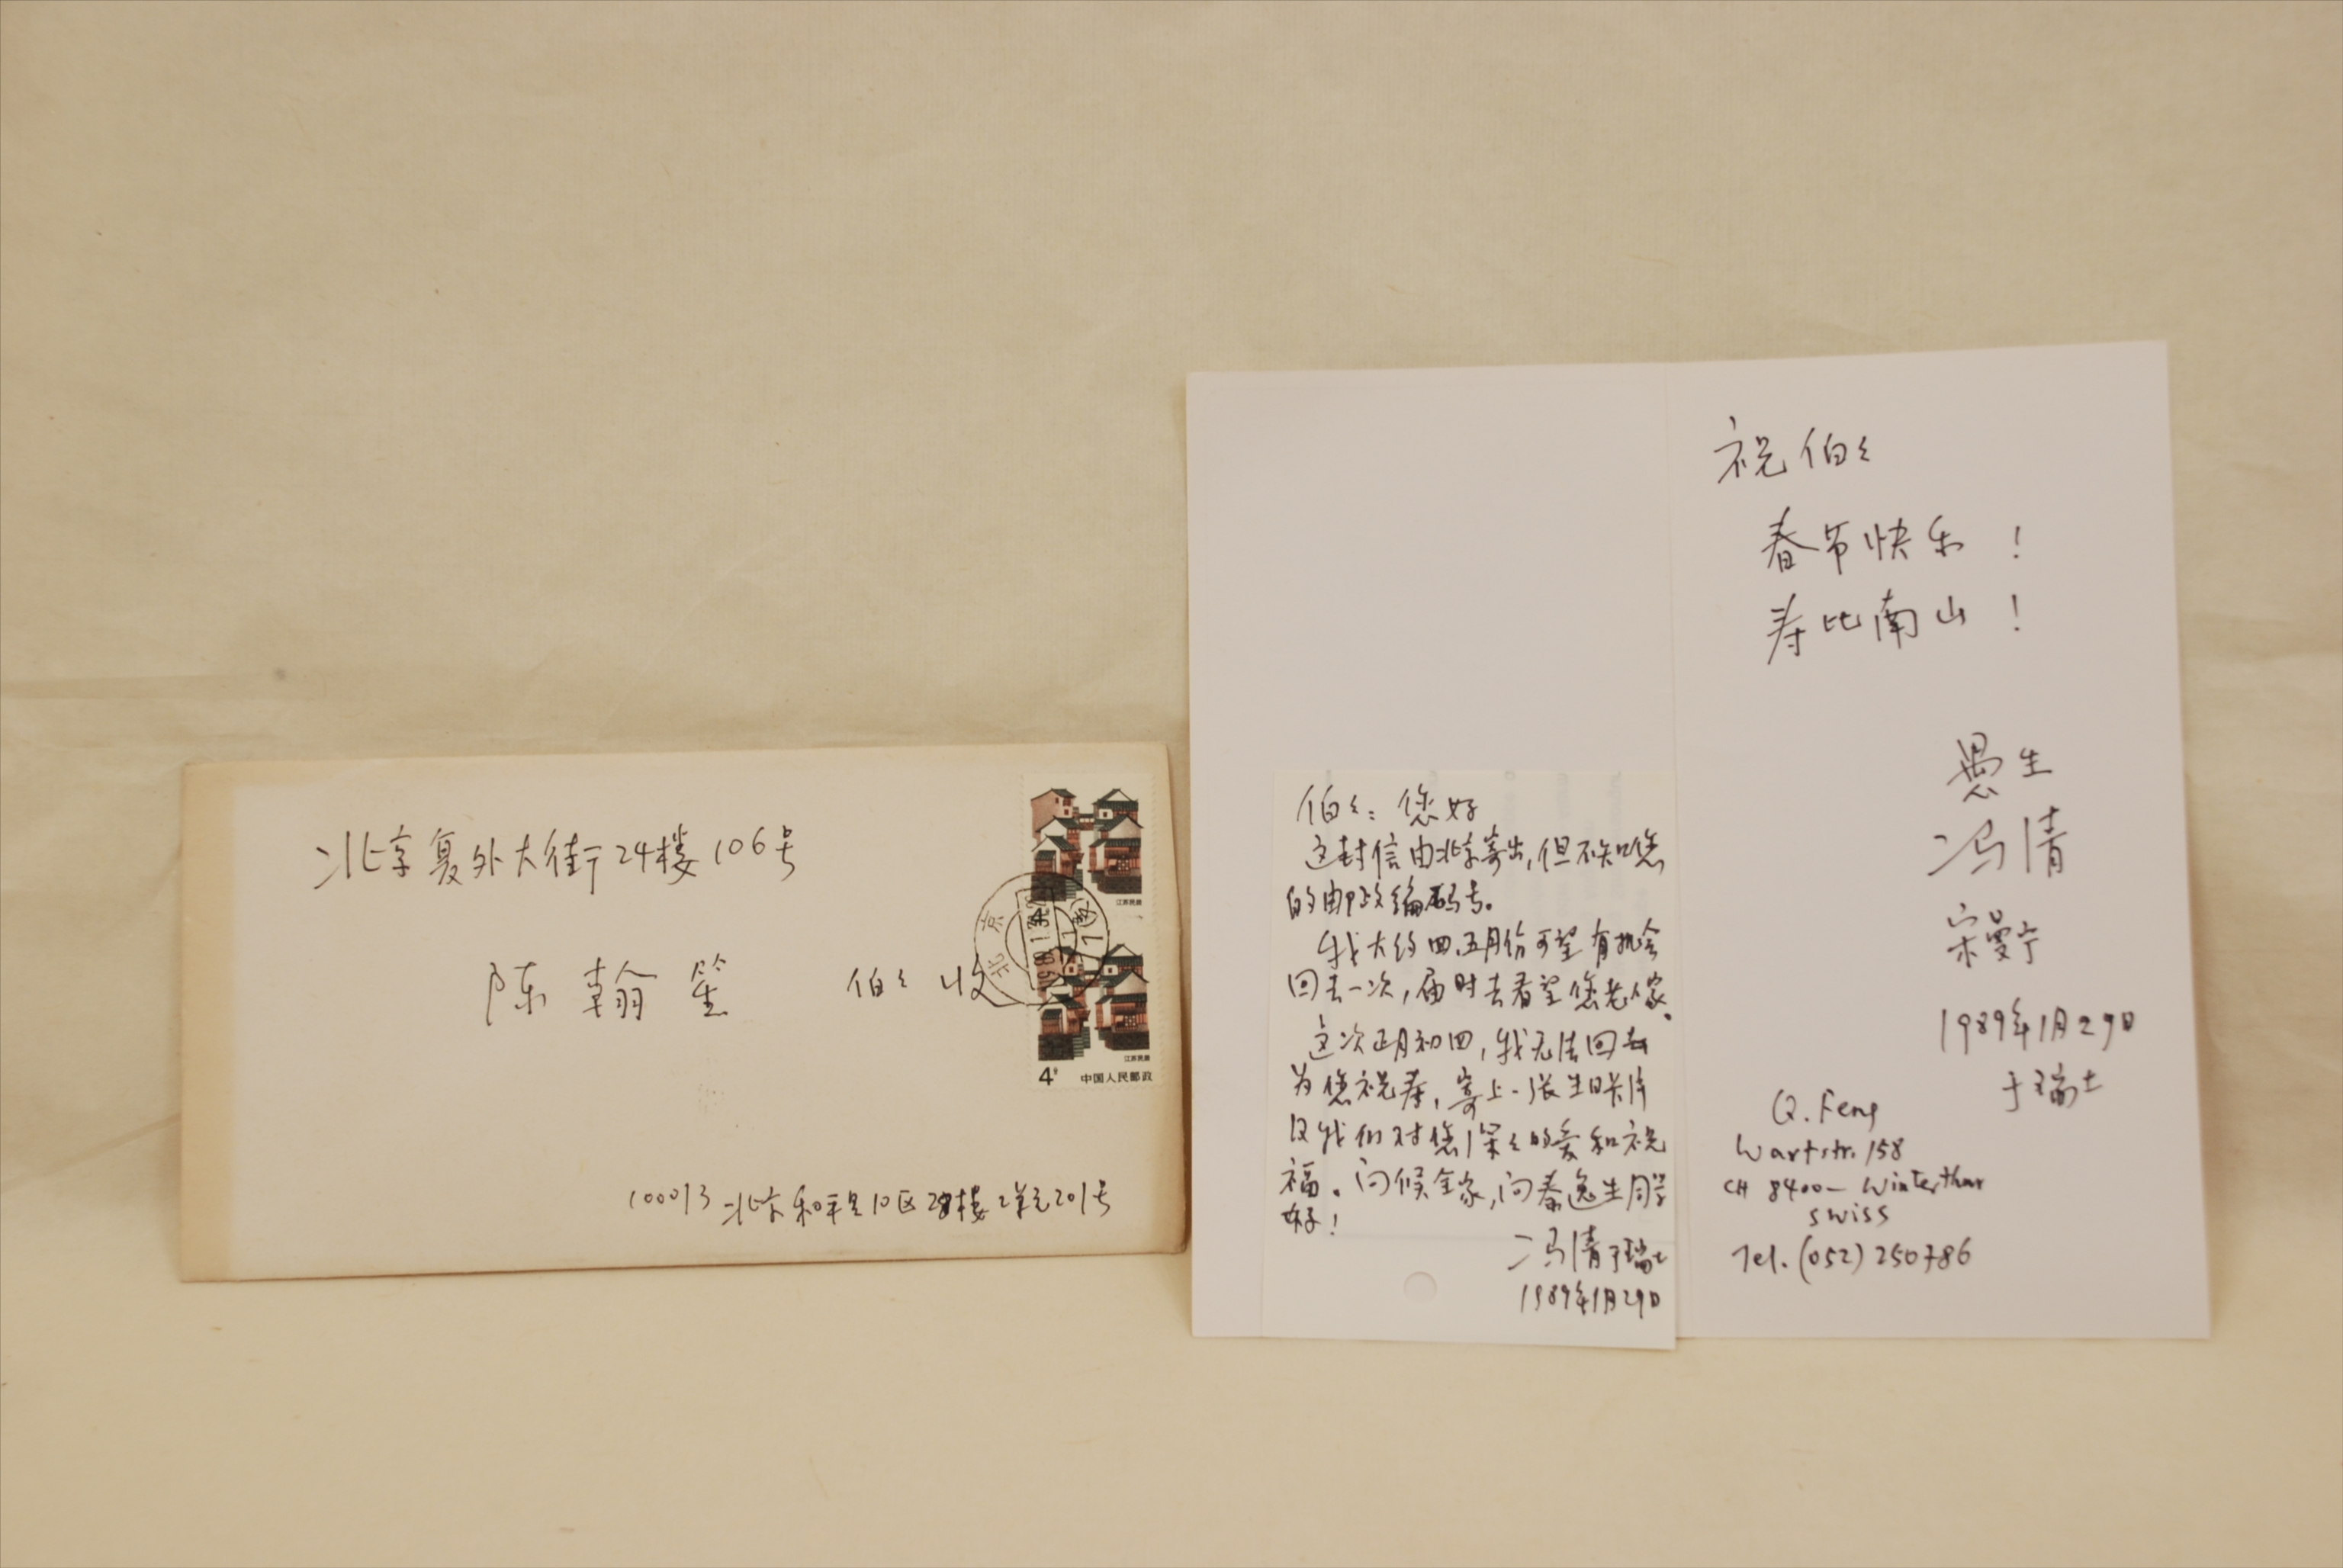 北京复外大街24楼106号
陈翰笙 伯伯 收
100013 北京和平里10区28楼2单元201号
江苏民居
江苏民居
4分 中国人民邮政
北京
伯〻：您好
这封信由北京寄出，但不知您
的邮政编码号。
我大约四、五月份可望有机会
回去一次，届时去看望您老人家。
这次正月初四，我无法回去
为您祝寿，寄上一张生日卡片
及我们对您深〻的爱和祝
福。问候全家，问秦逸生同学
好！
冯清于瑞士
1989年1月29日
祝伯〻
春节快乐！
寿比南山！
愚生
冯清
宋曼宁
1989年1月29日
于瑞士
Q. Feng
Wartstr. 158
CH 8400 - Winterthur
Swiss
Tel. (052) 250786